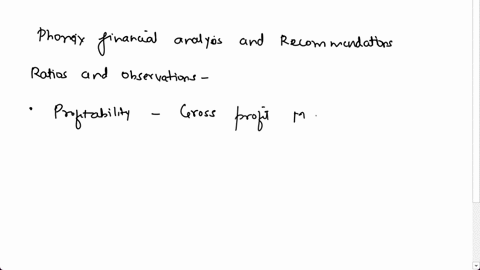 Phoneix financial analysis and Recommendations
Ratios and observations -
• Profitability - Gross profit M